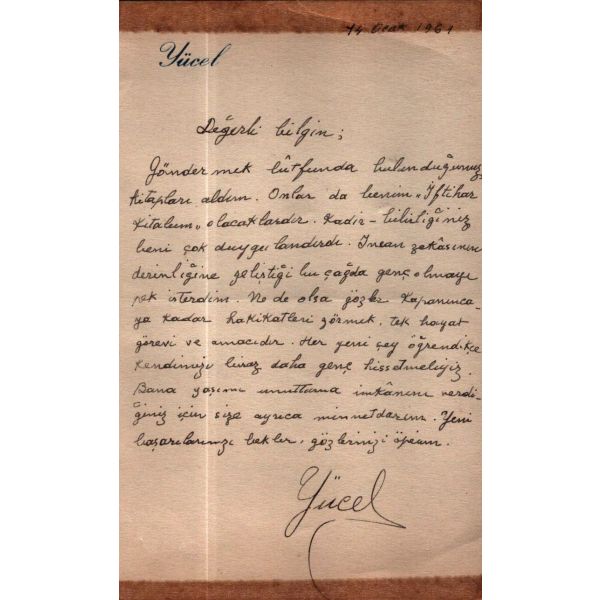 14 Ocak 1961
Yücel
Değerli bilgin;
Göndermek lûtfunda bulunduğunuz
kitapları aldım. Onlar da benim "İftihar
Kitabım" olacaklardır. Kadir-bilirliğiniz
beni çok duygulandırdı. İnsan zekâsının
derinliğine geliştiği bu çağda genç olmayı
pek isterdim. Ne de olsa gözler kapanınca-
ya kadar hakikatleri görmek, tek hayat
görevi ve amacıdır. Her yeni şey öğrendikçe
kendimizi biraz daha genç hissetmeliyiz.
Bana yaşımı unutturma imkânını verdi-
ğiniz için size ayrıca minnetdarım. Yeni
başarılarınızı bekler, gözlerinizi öperim.
Yücel